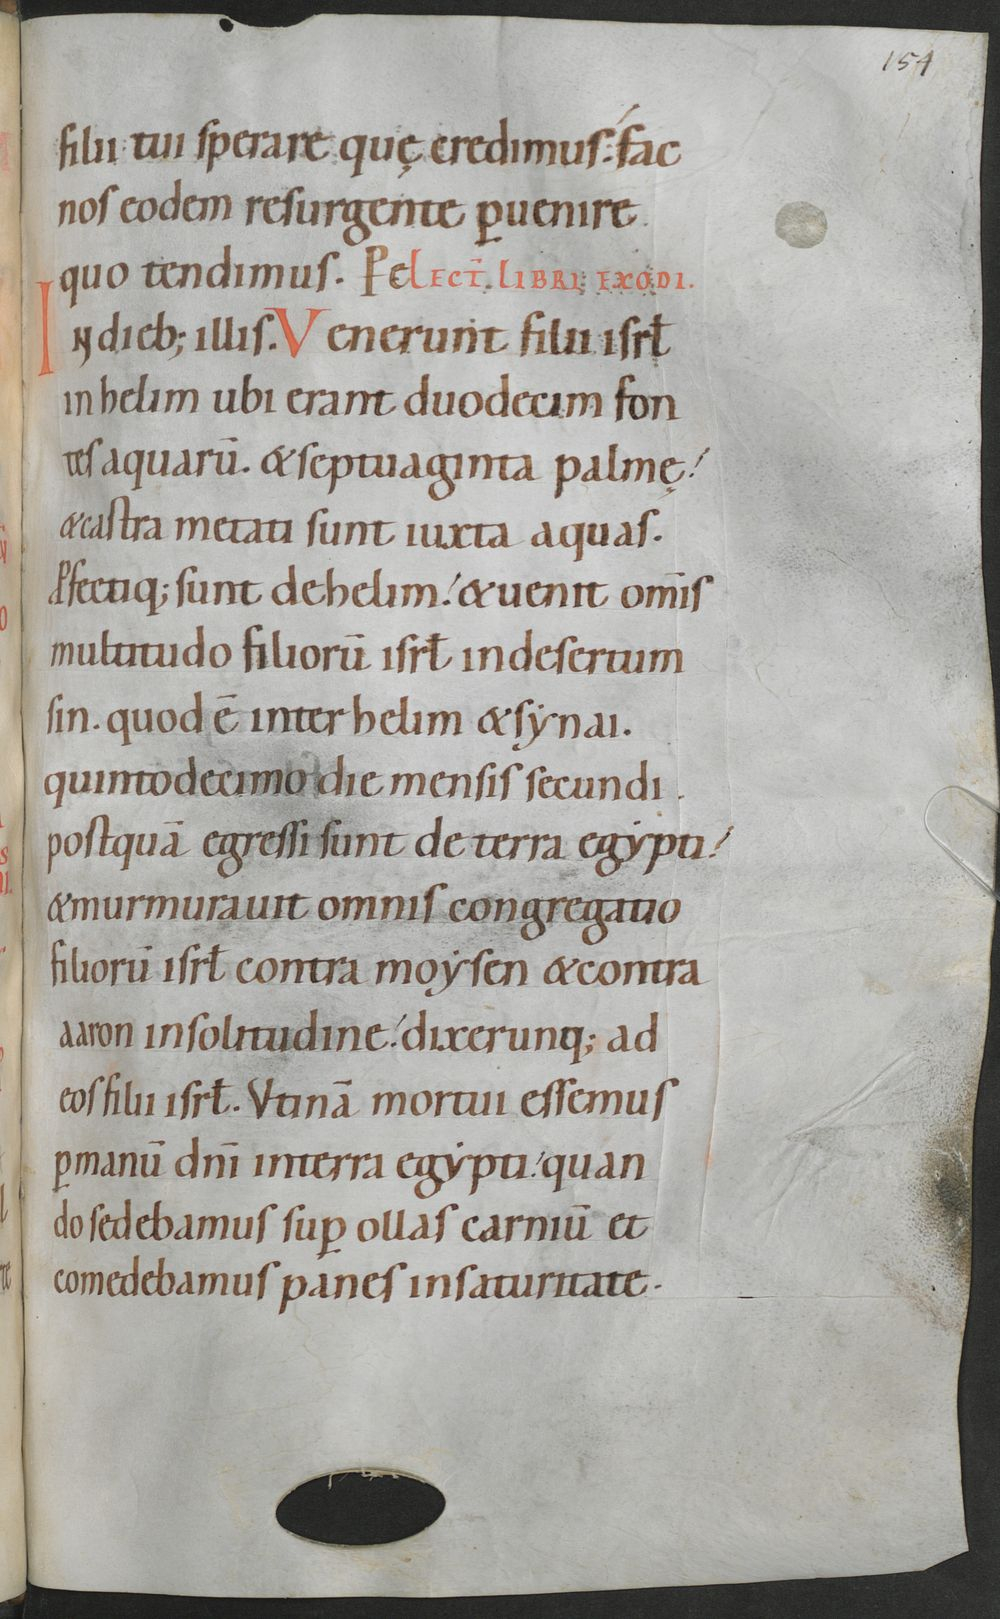 154
filii tui sperare quę credimus: fac
nos eodem resurgente ꝑuenire
quo tendimus. Pe LECT̄. LIBRI EXODI.
IN dieb; illis. Venerunt filii isrł
in helim ubi erant duodecim fon
tes aquarū. & septuaginta palmę!
& castra metati sunt iuxta aquas.
Ꝓfectiq; sunt de helim! & uenit om̄is
multitudo filiorū isrł in desertum
sin. quod ē inter helim & sẏnai.
quinto decimo die mensis secundi.
postquā egressi sunt de terra egẏpti!
& murmurauit omnis congregatio
filiorū isrł contra moẏsen & contra
aaron in solitudine! dixerunq; ad
eos filii isrł. Vtinā mortui essemus
ꝑ manū dn̄i in terra egẏpti! quan
do sedebamus suꝑ ollas carniū et
comedebamus panes in saturitate.